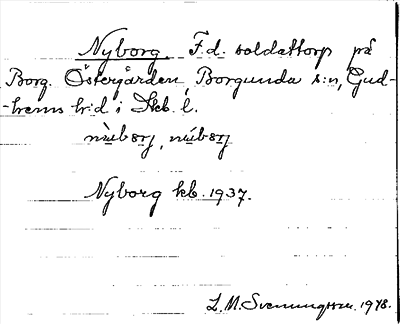 Nyborg. F.d. soldattorp på
Borg. Östergården, Borgunda s:n, Gud-
-hems h:d i Skb. l.
Nyborg kb. 1937.
L. M. Svenungsson. 1978.